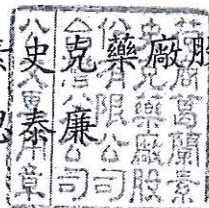 史克藥廠股
泰廉
荷商葛蘭素
史克藥廠股
份有限公司
公司
專用章